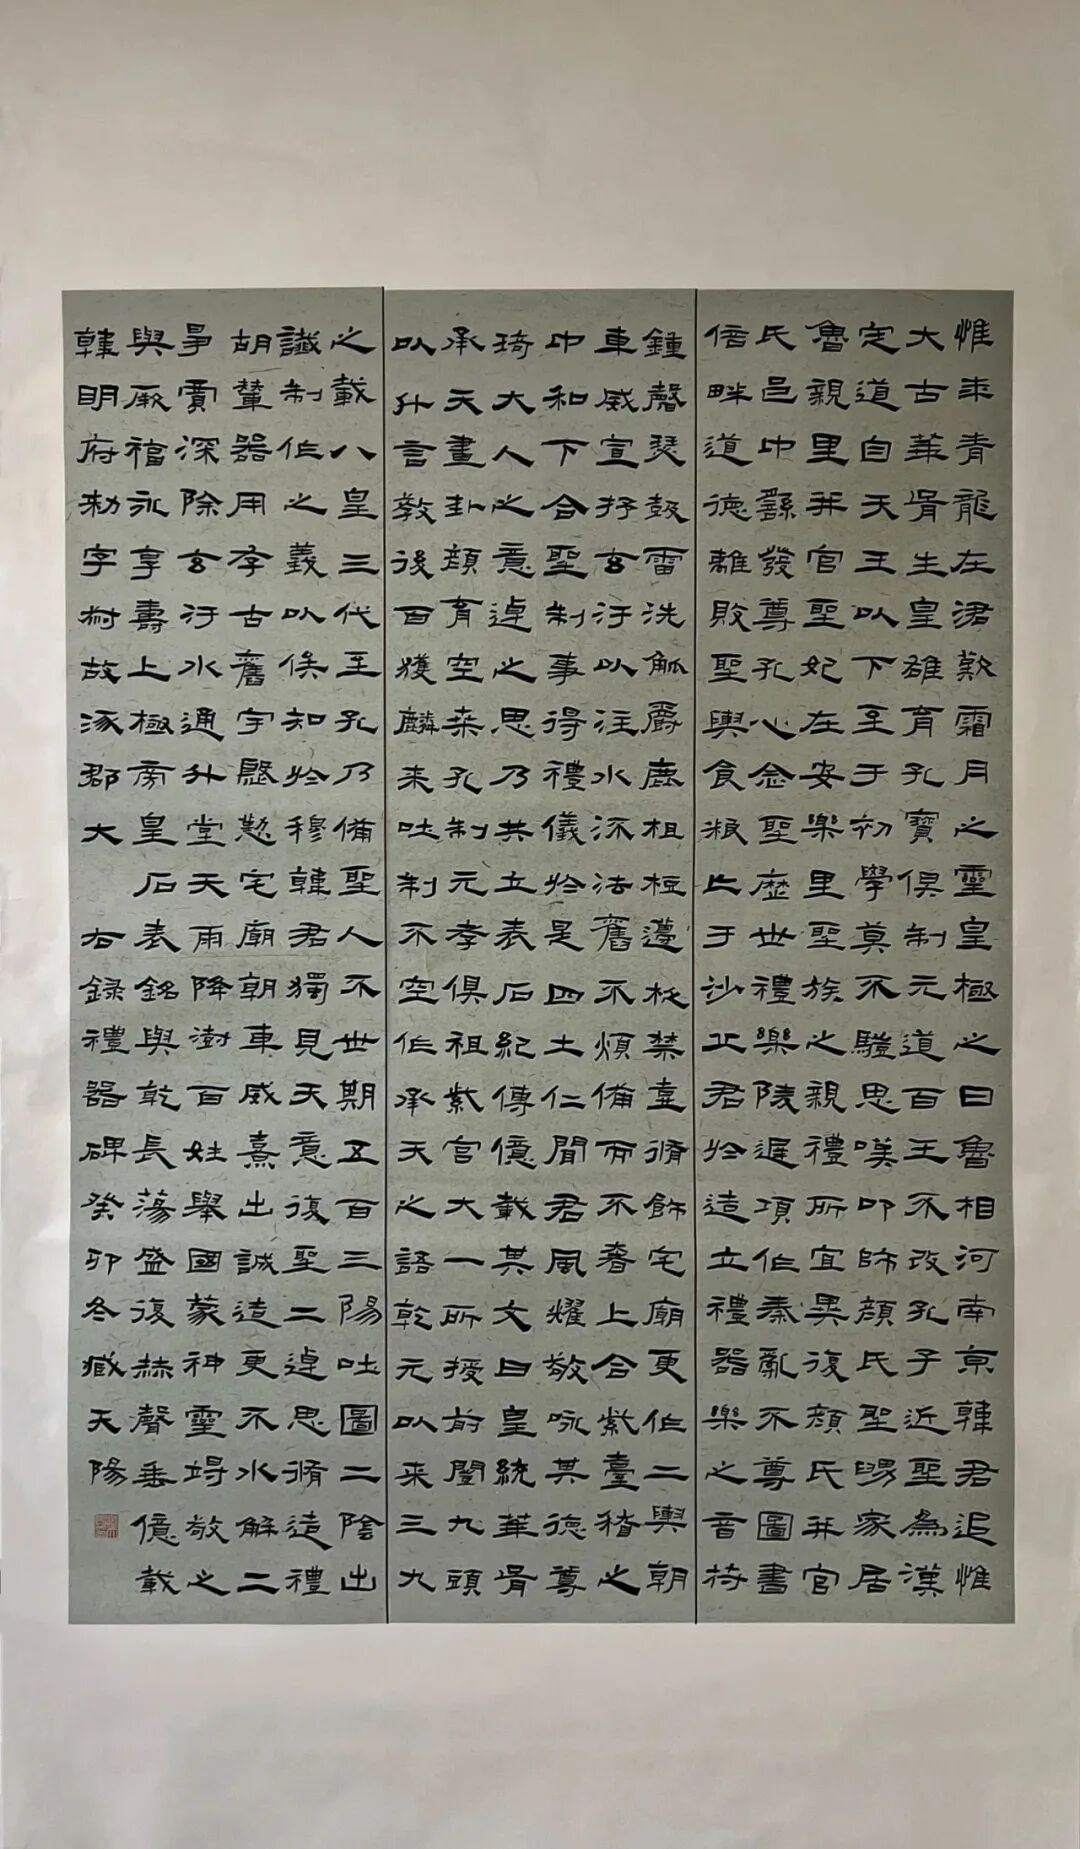 惟年青龍在涒歎霜月之靈皇極之日魯相河南京韓君追惟
大古華胥生皇雄育孔寶俱制元道百王不改孔子近聖為漢
定道自天王以下至于初學莫不驥思嘆卬師顏氏聖舅家居
魯親里并官聖妃在安樂里聖族之親禮所宜異復顏氏并官
氏邑中繇發尊孔心念聖歷世禮樂陵遲項作秦亂不尊圖書
倍畔道德離敗聖輿食粮亡于沙丘君於造立禮器樂之音符
鍾磬瑟鼓雷洗觚爵鹿柤梪籩柉禁壹脩飾宅廟更作二輿朝
車威宣抒玄汙以注水流法舊不煩備而不奢上合紫臺稽之
中和下合聖制事得禮儀於是四土仁聞君風燿敬咏其德尊
琦大人之意逴之思乃共立表石紀傳億載其文曰皇統華胥
承天畫卦顏育空桑孔制元孝俱祖紫宮大一所授前闓九頭
以升言教後百獲麟來吐制不空作承天之語乾元以來三九
之載八皇三代至孔乃備聖人不世期五百三陽吐圖二陰出
讖制作之義以俟知於穆韓君獨見天意復聖二逴思脩造禮
胡輦器用存古舊宇慇懃宅廟朝車威熹出誠造更不水解二
爭賈深除玄汙水通升堂天雨降澍百姓舉國蒙神靈竭敬之
與厥福永享壽上極旁皇石表銘與乾長蕩盛復赫聲垂億載
韓明府勑字叔故涿郡大 右錄禮器碑癸卯冬臧天陽